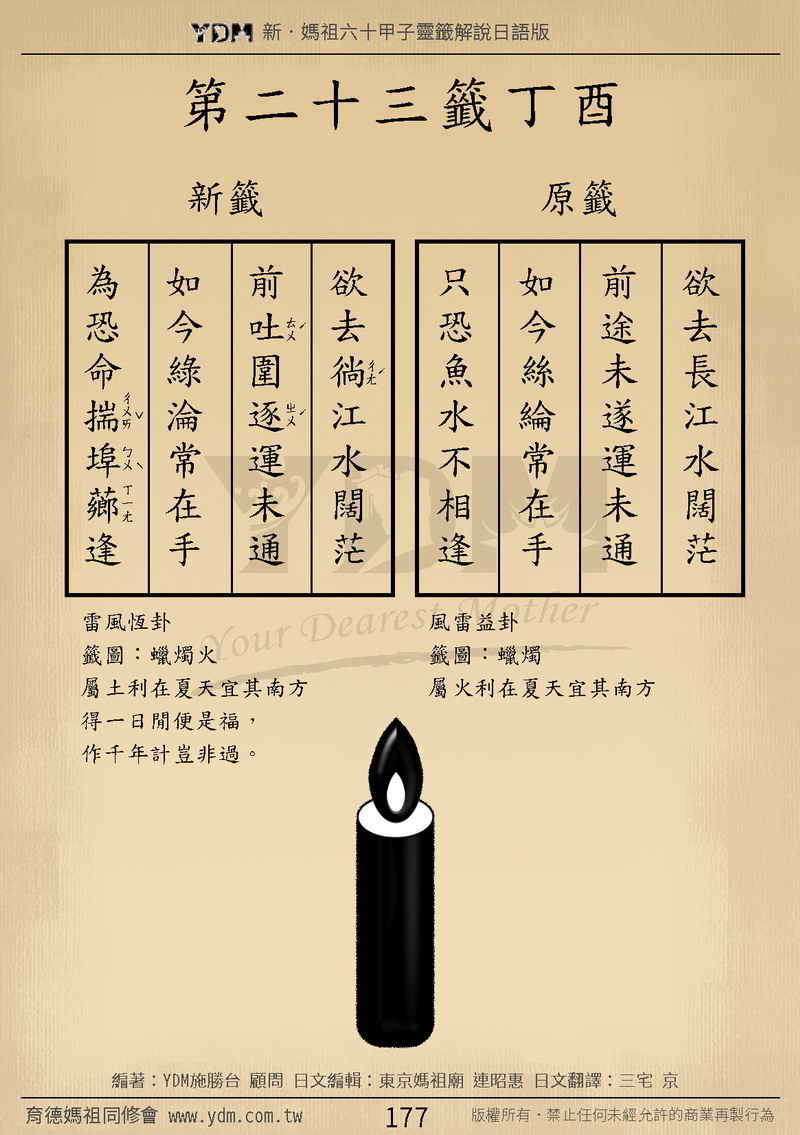 YDM 新．媽祖六十甲子靈籤解說日語版
第二十三籤丁酉
原籤
欲去長江水闊茫
前途未遂運未通
如今絲綸常在手
只恐魚水不相逢
風雷益卦
籤圖：蠟燭
屬火利在夏天宜其南方
新籤
欲去徜ㄔㄤˊ江水闊茫
前吐ㄊㄨˊ圍逐ㄓㄨˊ運未通
如今綠淪常在手
為恐命揣ㄔㄨㄞˇ埠ㄅㄨˋ薌ㄒㄧㄤ逢
雷風恆卦
籤圖：蠟燭火
屬土利在夏天宜其南方
得一日閒便是福，
作千年計豈非過。
YDM
Your Dearest Mother
編著：YDM施勝台 顧問 日文編輯：東京媽祖廟 連昭惠 日文翻譯：三宅 京
育德媽祖同修會 www.ydm.com.tw
177
版權所有．禁止任何未經允許的商業再製行為